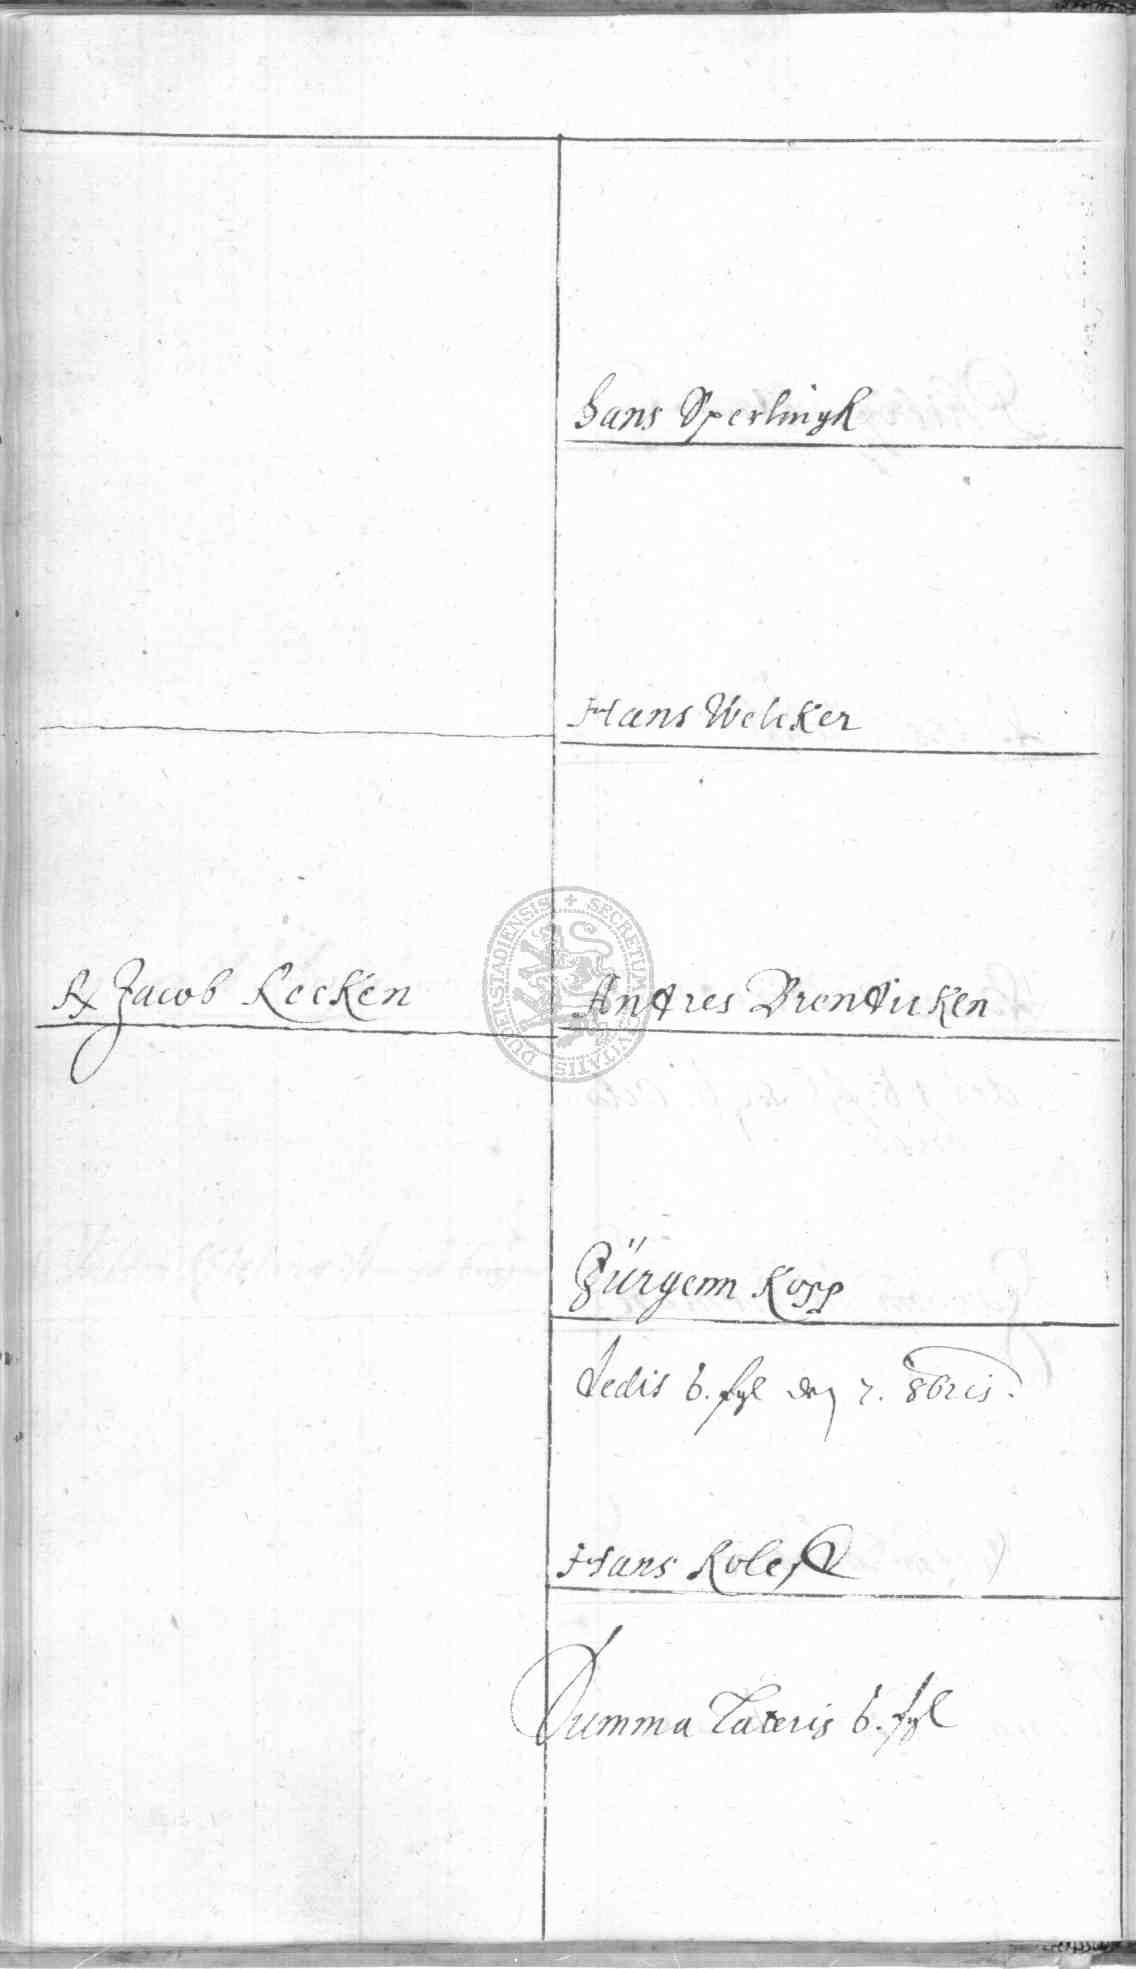 Hans Sperlingk
Hans Welcker
Rx Jacob Recken
Andres Brendicken
SECRETUM CIVITATIS DUDERSTADIENSIS
Jürgenn Kopp
dedit 6. fgl den 7. 8bris.
Hans Rolefs
Summa Lateris 6. fgl